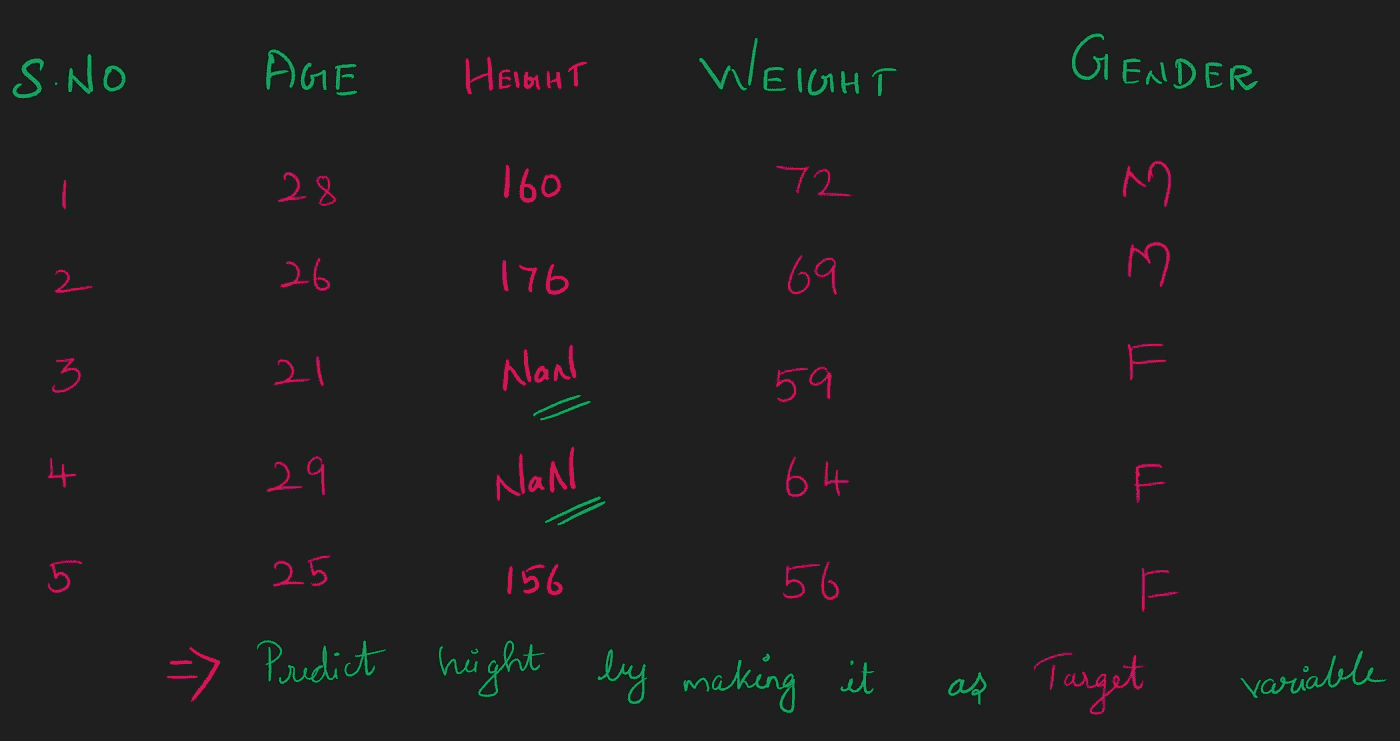 S.NO AGE HEIGHT WEIGHT GENDER
1 28 160 72 M
2 26 176 69 M
3 21 NaN 59 F
4 29 NaN 64 F
5 25 156 56 F
=> Predict height by making it as Target variable